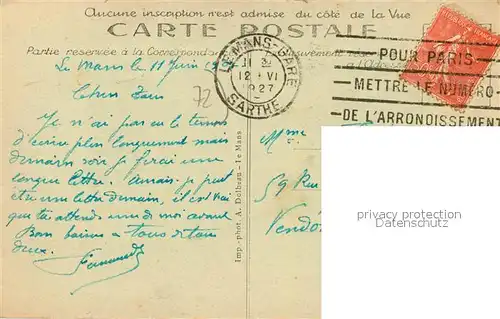 Aucune inscription n'est admise du côté de la Vue
CARTE POSTALE
Partie réservée à la Correspondance
LE MANS-GARE
12 - VI
1927
SARTHE
POUR PARIS
METTRE LE NUMÉRO
DE L'ARRONDISSEMENT
Le Mans le 11 Juin
72
Je n'ai pas eu le temps
d'écrire plus longuement mais
demain soir je ferai une
longue lettre.
une lettre demain, il est vrai
que tu attends une de moi avant
Bon baisers à tous de tous
deux.
Fernand
Mme
59 Rue
Vendô
Imp.-phot. A. Dolbeau - le Mans
privacy protection
watermark
©Datenschutz